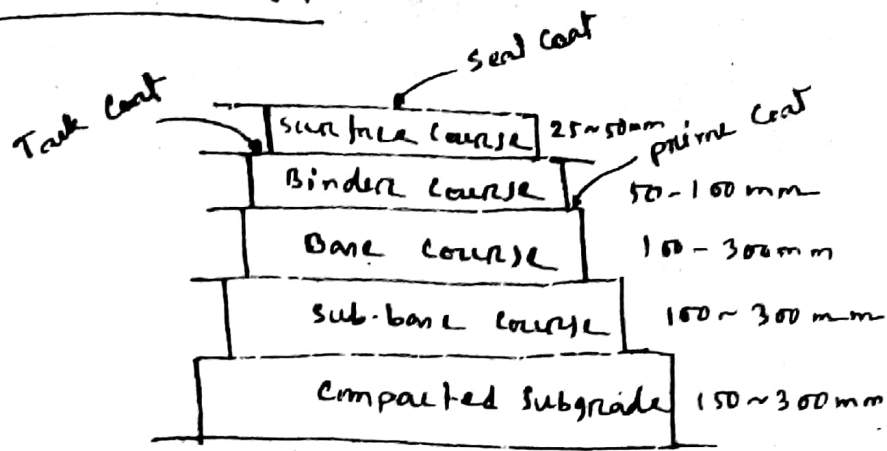 Seal Coat
Tack Coat
Surface Course 25~50mm
prime Coat
Binder Course 50-100mm
Base Course 100-300mm
Sub-base Course 100~300mm
Compacted Subgrade 150~300mm